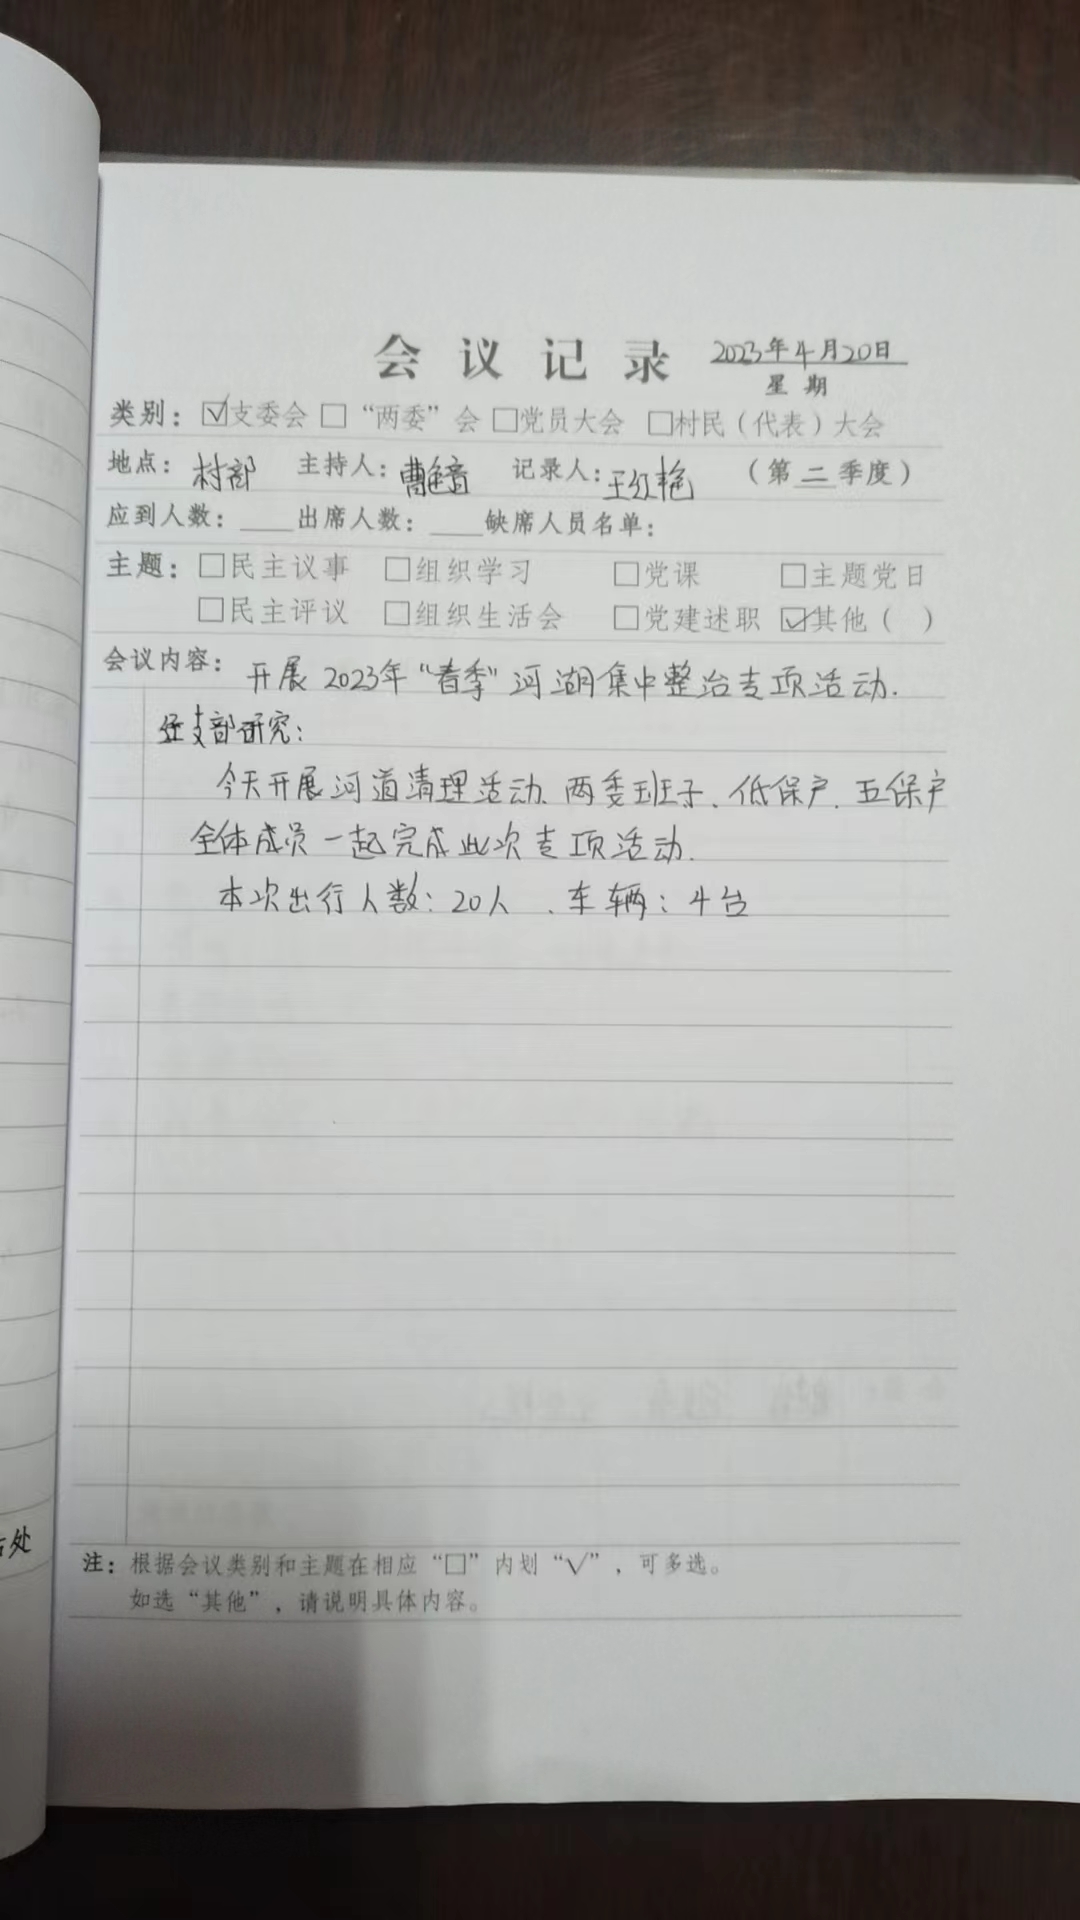 会议记录 2023年4月20日
星期
类别：☑支委会 □“两委”会 □党员大会 □村民（代表）大会
地点：村部 主持人：曹 记录人：王红艳 （第二季度）
应到人数：____出席人数：____缺席人员名单：
主题：□民主议事 □组织学习 □党课 □主题党日
□民主评议 □组织生活会 □党建述职 ☑其他（ ）
会议内容：开展2023年“春季”河湖集中整治专项活动.
经支部研究：
今天开展河道清理活动、两委班子、低保户、五保户
全体成员一起完成此次专项活动.
本次出行人数：20人、车辆：4台
注：根据会议类别和主题在相应“□”内划“√”，可多选。
如选“其他”，请说明具体内容。
处